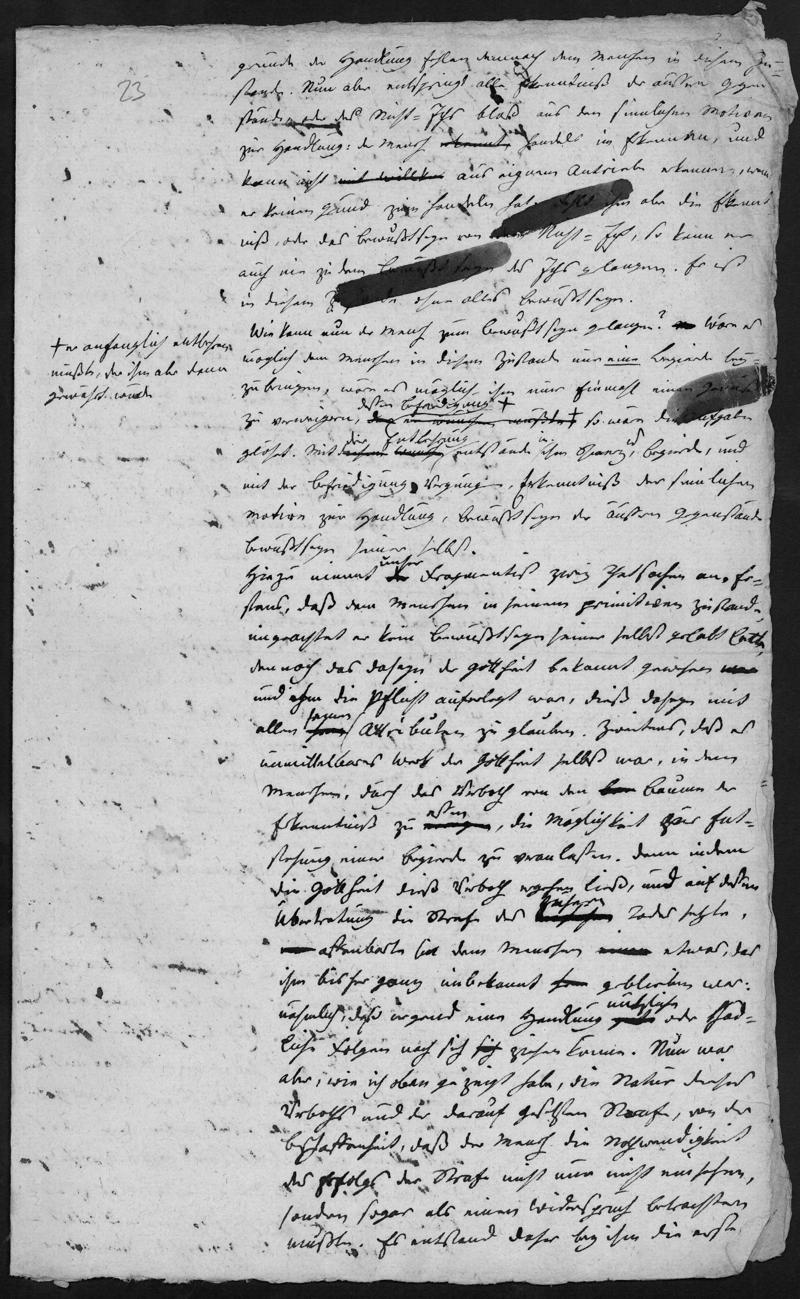 23
gründe der Handlung fehlen demnach dem Menschen in diesem Zu=
stande. Nun aber entspringt alle Erkenntniß der äussern Gegen
stände oder des Nicht=Ichs bloß aus den sinnlichen Motiven
zur Handlung: der Mensch erkennt handelt im Erkennen, und
kann nicht mit willkü aus eignem Antriebe erkennen, wenn
er keinen Grund zum handeln hat. Fehlt ihm aber die Erkennt
niß, oder das Bewußtseyn vom Nicht=Ich, so kann er
auch nie zu dem Bewußtseyn des Ichs gelangen. Er ist
in diesem Zustande ohne alles Bewußtseyn.
Wie kann nun der Mensch zum Bewußtseyn gelangen? Wäre es
möglich dem Menschen in diesem Zustande nur eine Begierde bey=
zubringen, wäre es möglich ihm nur Einmahl einen Genuß
zu verweigern, dessen Befriedigung + den er wünschen mußte + so wäre die Aufgabe
+ er anfänglich entbehren
mußte, der ihm aber dann
gewährt würde
gelöst. Mit der Entbehrung entstände in ihm Schmerz, Begierde, und
mit der Befriedigung Vergnügen, Erkenntniß der sinnlichen
Motive zur Handlung, Bewußtseyn der äussern Gegenstände
Bewußtseyn seiner selbst.
Hiezu nimmt unser Fragmentist zwei Thatsachen an. Er=
stens, daß dem Menschen in seinem primitiven Zustande,
ungeachtet er kein Bewußtseyn seiner selbst gehabt hatte,
dennoch das Daseyn der Gottheit bekannt gewesen
und ihm die Pflicht auferlegt war, dieß Daseyn mit
allen seinen Attributen zu glauben. Zweitens, daß es
unmittelbares Werk der Gottheit selbst war, in dem
Menschen, durch das Verboth von den Baume der
Erkenntniß zu essen, die Möglichkeit zur Ent=
stehung einer Begierde zu veranlassen. Denn indem
die Gottheit dieß Verboth ergehen ließ, und auf dessen
Übertretung die Strafe des Todes setzte,
offenbarte sie dem Menschen einen etwas, das
ihm bisher ganz unbekannt geblieben war:
nähmlich, daß irgend eine Handlung nützliche gute oder schäd=
liche Folgen nach sich ziehen könne. Nun war
aber, wie ich oben gezeigt habe, die Natur dieses
Verboths und der darauf gesetzten Strafe, von der
Beschaffenheit, daß der Mensch die Nothwendigkeit
des Erfolgs der Strafe nicht nur nicht einsehen,
sondern sogar als einen Widerspruch betrachten
mußte. Es entstand daher bey ihm die erste